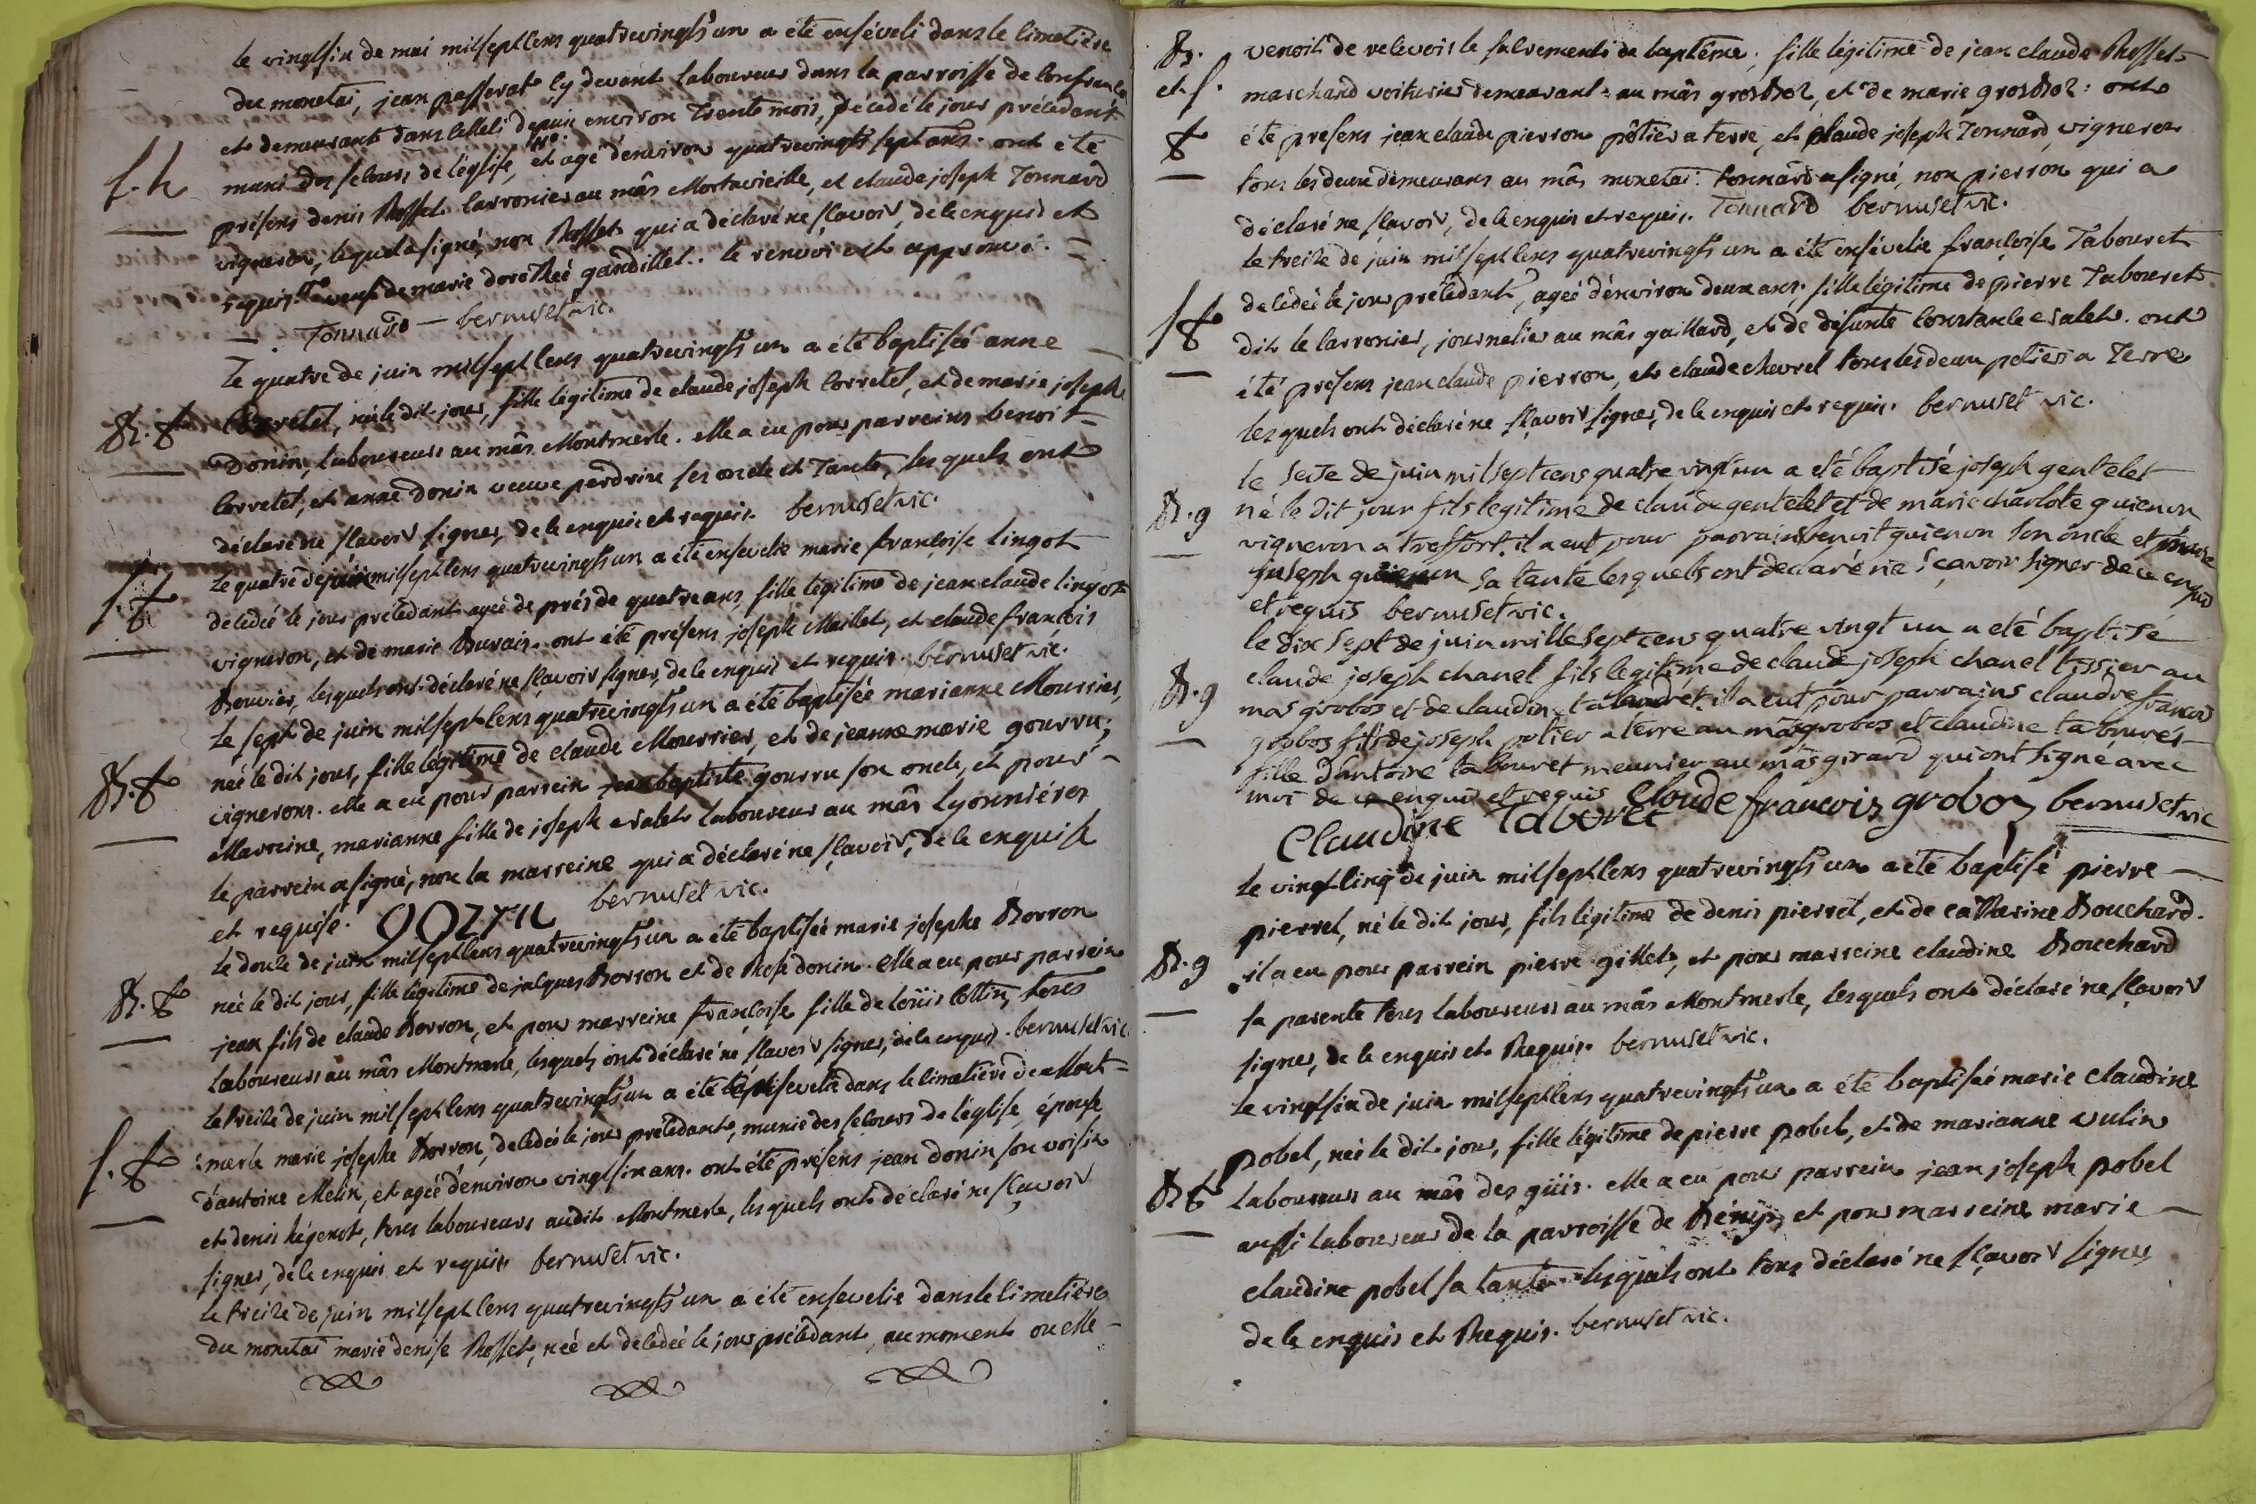 le vingtsix de mai milseptcens quatrevingts un a été enséveli dans le cimetière
du monetai, jean passerat cy devant laboureur dans la parroisse de
et demeurant dans celleci depuis environ trente mois, décédé le jour précédent
s.h muni des secours de l'église, et agé d'environ quatrevingts sept ans. ont été
présens denis Rosset carronier au mâs Mortevieille, et claude joseph Tonnard
vigneron, lequel a signé, non Rosset qui a déclaré ne sçavoir, de ce enquis et
requis. veuf de marie dorothée gandillet. le renvoi est approuvé.
Tonnard bernuset vic.
Le quatre de juin milseptcens quatrevingts un a été baptisée anne
B.f Corretel, née le dit jour, fille légitime de claude joseph Corretel, et de marie josephe
Donin, laboureurs au mâs Montmerle. elle a eu pour parreins benoit
Corretel, et anne Donin veuve perdrix ses oncle et tante, lesquels ont
déclaré ne sçavoir signer, de ce enquis et requis. bernuset vic.
s.f Le quatre de juin milseptcens quatrevingts un a été ensevelie marie françoise Lingot
décédée le jour précédant agée de près de quatre ans, fille légitime de jean claude lingot
vigneron, et de marie Duvais. ont été présens joseph Maillet, et claude françois
Bouvier, lesquels ont déclaré ne sçavoir signer, de ce enquis et requis. bernuset vic.
le sept de juin milseptcens quatrevingts un a été baptisée marianne Mourrier,
B.f née le dit jour, fille légitime de claude Mourrier, et de jeanne marie gourru,
vignerons. elle a eu pour parrein jean baptiste gourru son oncle, et pour
Marreine, marianne fille de joseph valet laboureur au mâs Lyonnières
le parrein a signé, non la marreine qui a déclaré ne sçavoir, de ce enquise
et requise. gozru bernuset vic.
Le douze de juin milseptcens quatrevingts un a été baptisée marie josephe Borron
B.f née le dit jour, fille légitime de jacques Borron et de Rose donin. elle a eu pour parrein
jean fils de claude Borron, et pour marreine françoise fille de loüis Cottin, tous
laboureurs au mâs Montmerle, lesquels ont déclaré ne sçavoir signer, de ce enquis. bernuset vic.
Le treize de juin milseptcens quatrevingts un a été ensevelie dans le cimetière de Mont=
s.f =merle marie josephe Borron, décédée le jour précédant, munie des secours de l'église, épouse
d'antoine Melin, et agée d'environ vingtsix ans. ont été présens jean donin son voisin
et denis hégenot, tous laboureurs audit Montmerle, lesquels ont déclaré ne sçavoir
signer, de ce enquis et requis bernuset vic.
Le treize de juin milseptcens quatrevingts un a été ensevelie dans le cimetière
du monetai marie denise Rosset, née et décédée le jour précédant, au moment ou elle
B. venoit de recevoir le sacrement de baptême, fille légitime de jean claude Rosset
et s. marchand voiturier demeurant au mâs grosboz, et de marie grosboz. ont
f été présens jean claude pierron pôtier a terre, et claude joseph Tonnard, vigneron
tous les deux demeurans au mâs monetai. tonnard a signé, non pierron qui a
déclaré ne sçavoir, de ce enquis et requis. Tonnard bernuset vic.
Le treize de juin milseptcens quatrevingts un a été ensévelie françoise Tabouret
s.f décédée le jour précédant, agée d'environ deux ans, fille légitime de pierre Tabouret
dit le carronier, journalier au mâs gaillard, et de défunte constance valet. ont
été présens jean claude pierron, et claude chevrel tous les deux potiers a Terre
lesquels ont déclaré ne sçavoir signer, de ce enquis et requis. bernuset vic.
le seise de juin mil sept cens quatre vingt un a eté baptisé joseph gentelet
B.g né le dit jour fils legitime de claude gentelet et de marie charlote guienon
vigneron a treffort. il a eut pour parrains benoit guienon son oncle et
joseph guienon sa tante lesquels ont declaré ne sçavoir signer de ce enquis
et requis bernuset vic.
le dix sept de juin mille sept cens quatre vingt un a eté baptisé
B.g claude joseph chanel fils legitime de claude joseph chanel tissier au
mas grobos et de claudine tabouret. il a eut pour parrains claude francois
grobos fils de joseph potier a terre au mas grobos et claudine tabouret
fille d'antoine tabouret meunier au mas girard qui ont signé avec
moi de ce enquis et requis claude francois grobos bernuset vic
Claudine Taboret
Le vingtcinq de juin milseptcens quatrevingts un a été baptisé pierre
pierrel, né le dit jour, fils légitime de denis pierrel, et de catherine Bouchard.
B.g il a eu pour parrein pierre gillet, et pour marreine claudine Bouchard
sa parente tous laboureurs au mâs Montmerle, lesquels ont déclaré ne sçavoir
signer, de ce enquis et Requis. bernuset vic.
Le vingtsix de juin milseptcens quatrevingts un a été baptisée marie claudine
pobel, née le dit jour, fille légitime de pierre pobel, et de marianne vulin
B.f laboureurs au mâs des güis. elle a eu pour parrein jean joseph pobel
aussi laboureur de la parroisse de Bény, et pour marreine marie
claudine pobel sa tante lesquels ont tous déclaré ne sçavoir signer
de ce enquis et Requis. bernuset vic.